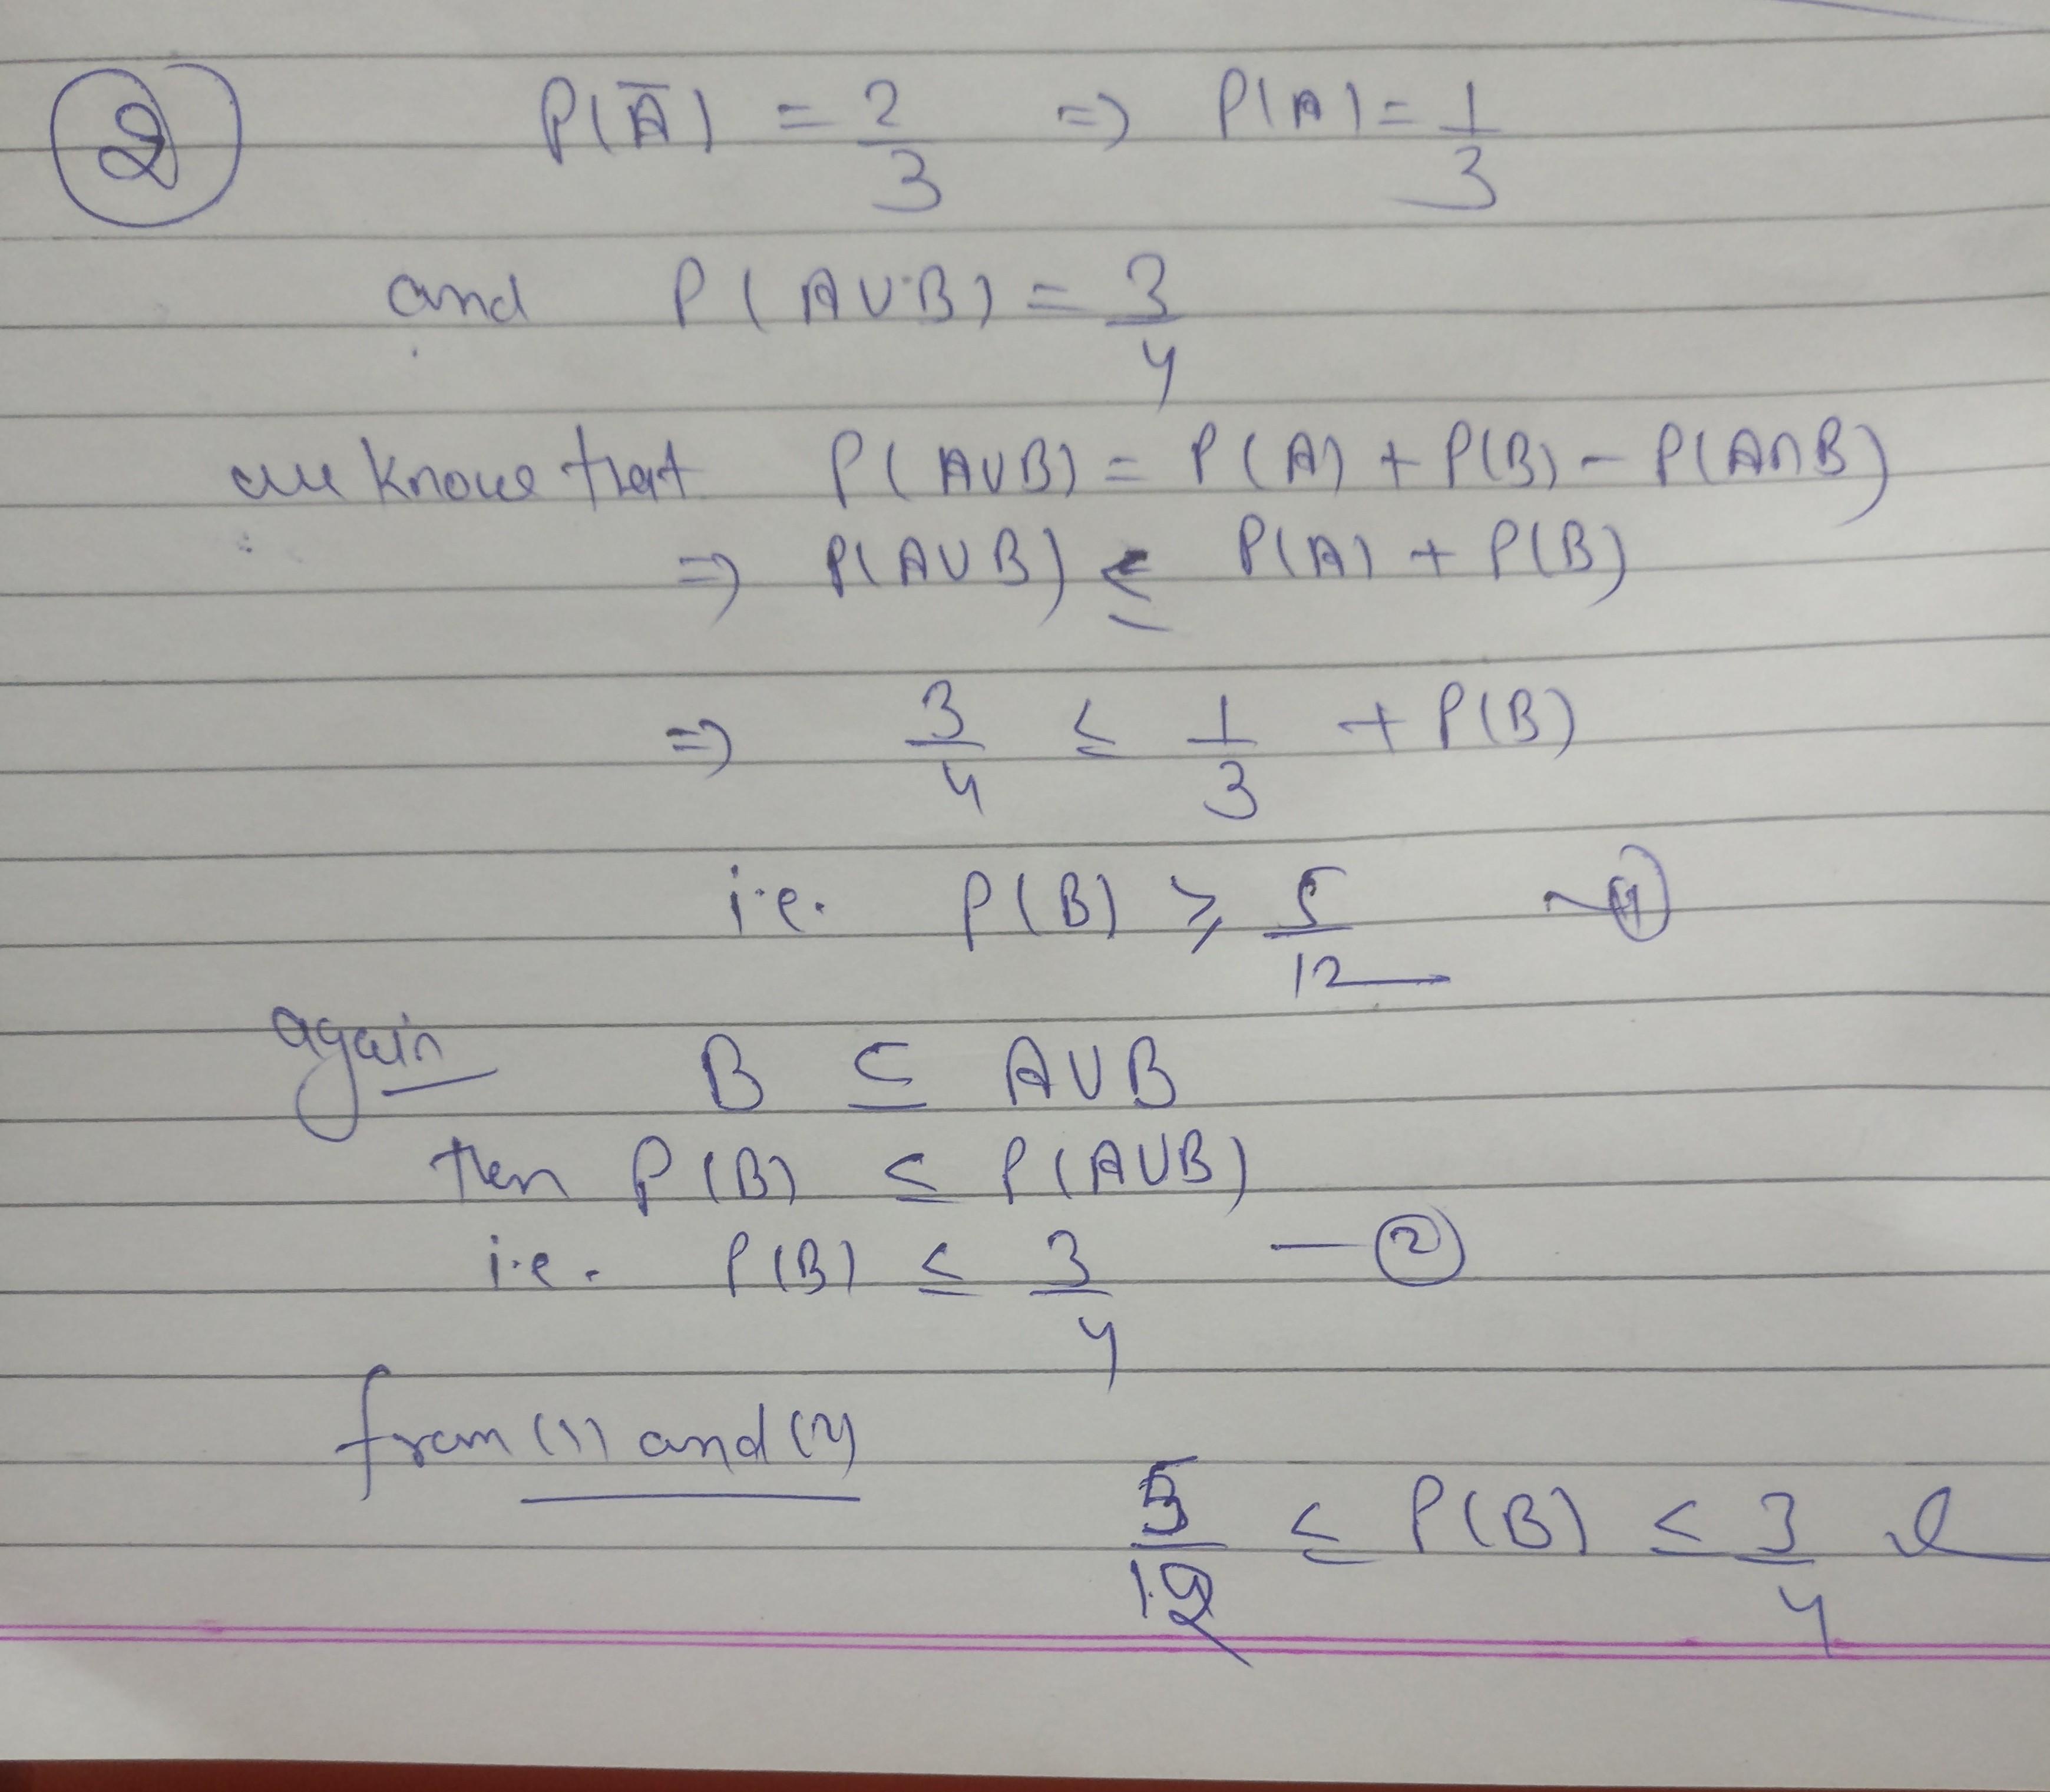 2 P(A̅) = 2/3 => P(A) = 1/3
and P(A∪B) = 3/4
we know that P(A∪B) = P(A) + P(B) - P(A∩B)
=> P(A∪B) ≤ P(A) + P(B)
=> 3/4 ≤ 1/3 + P(B)
i.e. P(B) ≥ 5/12 — 1
again B ⊆ A∪B
then P(B) ≤ P(A∪B)
i.e. P(B) ≤ 3/4 — 2
from (1) and (2)
5/12 ≤ P(B) ≤ 3/4